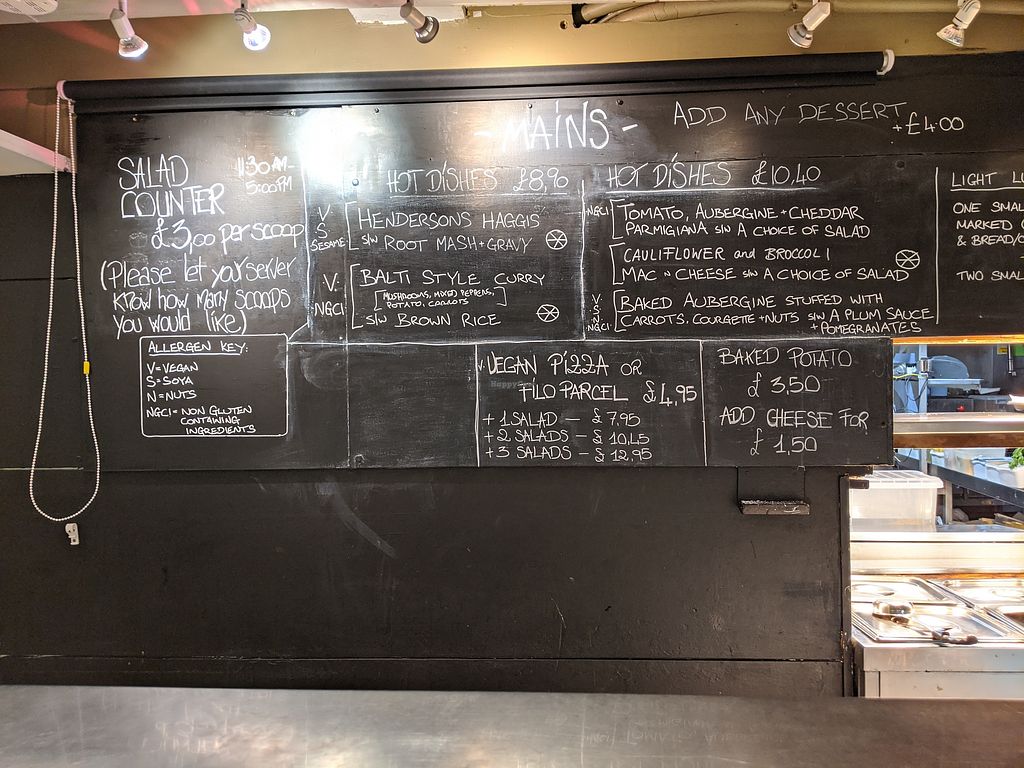 - MAINS -
ADD ANY DESSERT
+ £4.00
SALAD
COUNTER
11:30AM-
5:00PM
£3,00 per scoop
(Please let your server
know how many scoops
you would like)
ALLERGEN KEY:
V = VEGAN
S = SOYA
N = NUTS
NGCI = NON GLUTEN
CONTAINING
INGREDIENTS
HOT DISHES £8,90
V
S
SESAME
HENDERSONS HAGGIS
S/W ROOT MASH + GRAVY
V.
NGCI
BALTI STYLE CURRY
[MUSHROOMS, MIXED PEPPERS,
POTATO, CARROTS]
S/W BROWN RICE
HOT DISHES £10,40
NGCI
TOMATO, AUBERGINE + CHEDDAR
PARMIGIANA S/W A CHOICE OF SALAD
CAULIFLOWER and BROCCOLI
MAC N CHEESE S/W A CHOICE OF SALAD
V.
S.
N.
NGCI
BAKED AUBERGINE STUFFED WITH
CARROTS, COURGETTE + NUTS S/W A PLUM SAUCE
+ POMEGRANATES
LIGHT
ONE
MARKED
& BREAD/
TWO
V. VEGAN PIZZA OR
FILO PARCEL £4,95
+ 1 SALAD — £7.95
+ 2 SALADS - £10,45
+ 3 SALADS - £12,95
BAKED POTATO
£3,50
ADD CHEESE FOR
£1,50